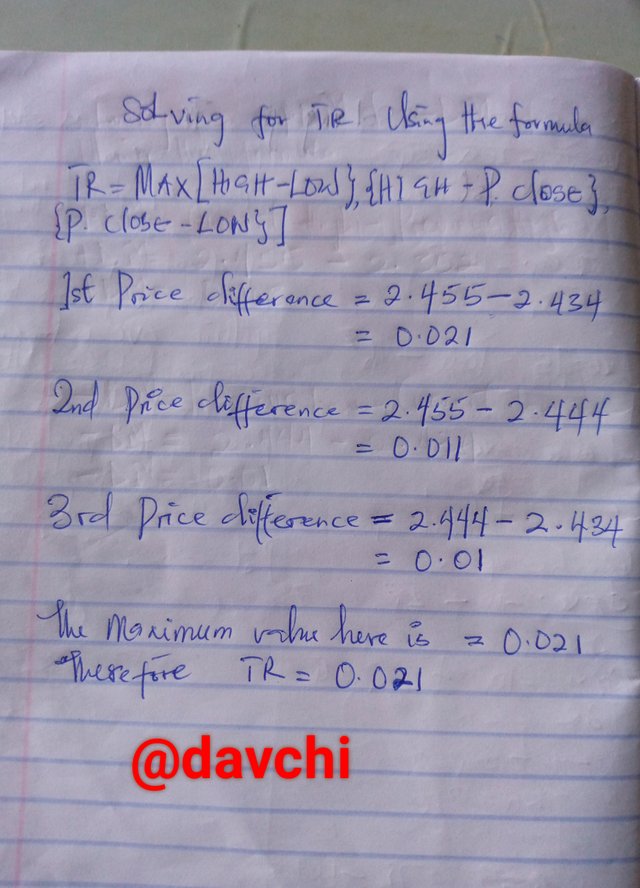 Solving for TR Using the formula
TR = MAX[HIGH-LOW},{HIGH - P. close},
{P. close - LOW}]
1st Price difference = 2.455-2.434
= 0.021
2nd Price difference = 2.455 - 2.444
= 0.011
3rd Price difference = 2.444 - 2.434
= 0.01
The Maximum value here is = 0.021
Therefore TR = 0.021
@davchi